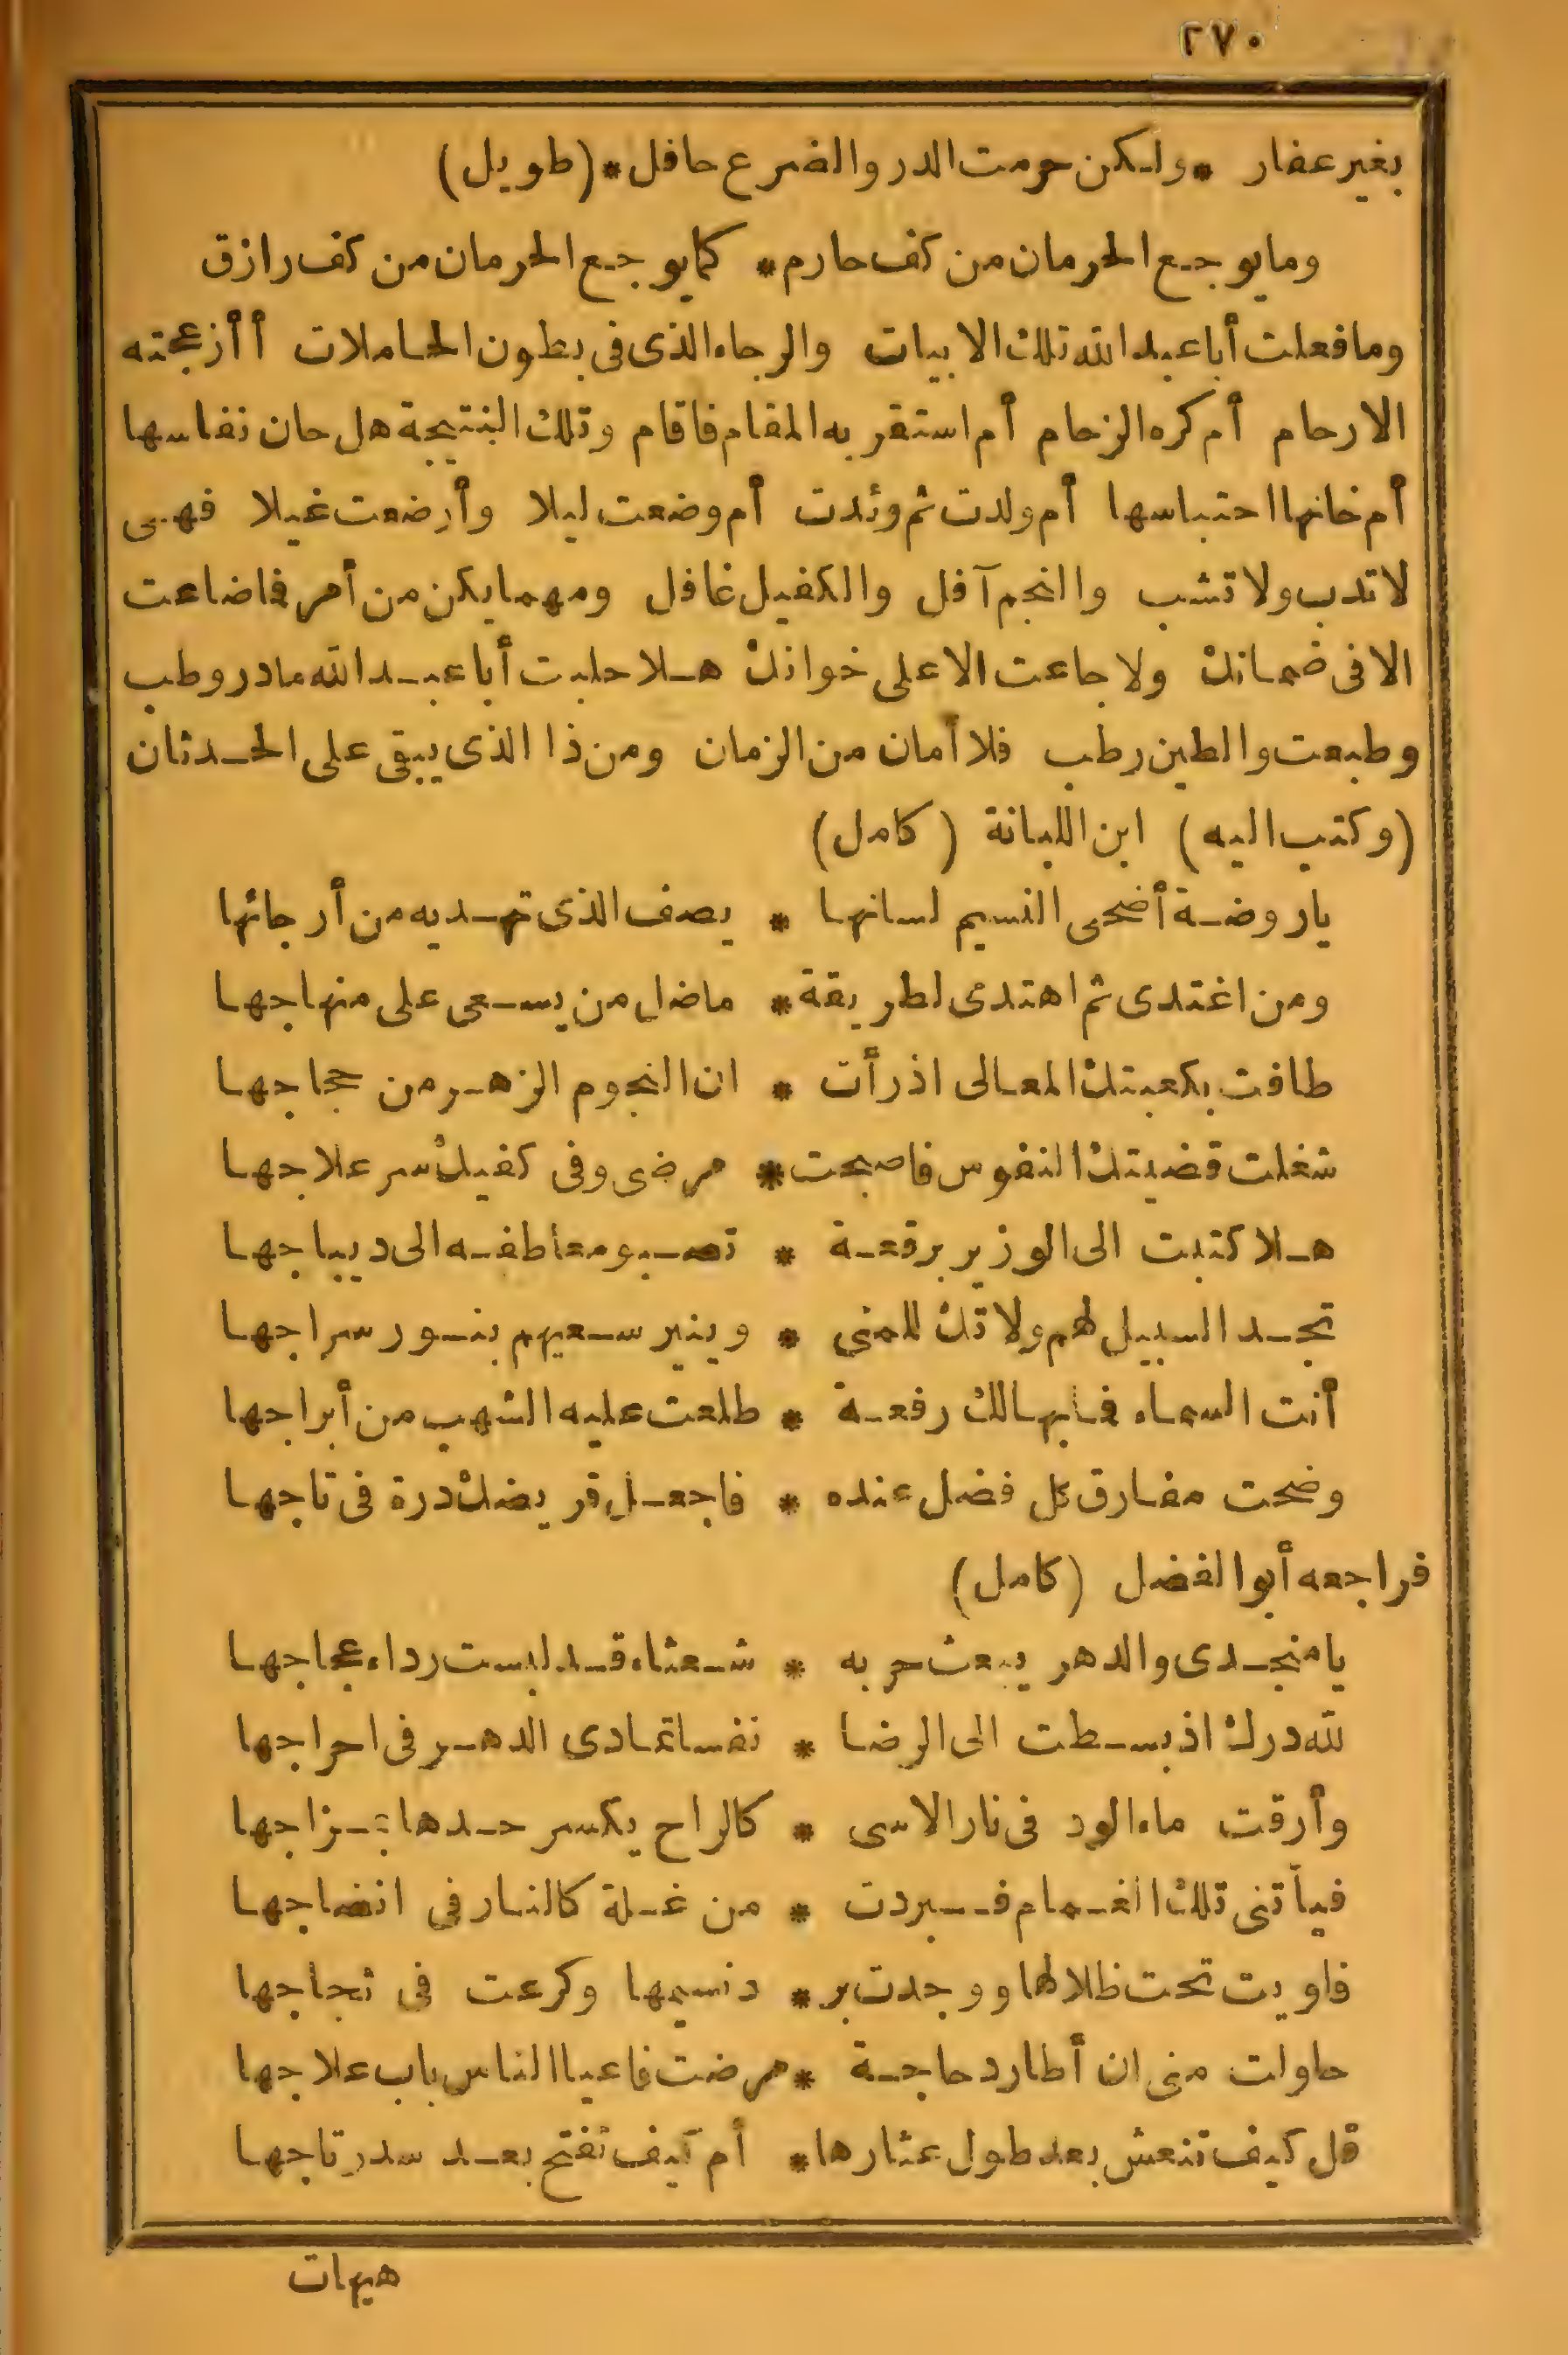 ٢٧٠
بغير عفار * ولكن حرمت الدر والضرع حافل * (طويل)
وما يوجع الحرمان من كف حارم * كما يوجع الحرمان من كف رازق
وما فعلت أبا عبد الله تلك الابيات والرجاء الذى فى بطون الحاملات أأزعجته
الارحام أم كره الزحام أم استقر به المقام فاقام وتلك النتيجة هل حان نفاسها
أم خانها احتباسها أم ولدت ثم وئدت أم وضعت ليلا وأرضعت غيلا فهى
لا تدب ولا تشب والنجم آفل والكفيل غافل ومهما يكن من أمر فاضاعت
الا فى ضمانك ولا جاعت الا على خوانك هلا حلبت أبا عبد الله ما در وطب
وطبعت والطين رطب فلا أمان من الزمان ومن ذا الذى يبقى على الحدثان
(وكتب اليه) ابن اللبانة (كامل)
يا روضة أضحى النسيم لسانها * يصف الذى تهديه من أرجائها
ومن اغتدى ثم اهتدى لطريقة * ما ضل من يسعى على منهاجها
طافت بكعبتك المعالى اذ رأت * ان النجوم الزهر من حجاجها
شغلت قضيتك النفوس فاصبحت * مرضى وفى كفيك سر علاجها
هلا كتبت الى الوزير برقعة * تصبو معاطفه الى ديباجها
تجد السبيل لهم ولاتك للمنى * وينير سعيهم بنور سراجها
أنت السماء فابها لك رفعة * طلعت عليه الشهب من أبراجها
وضحت مفارق كل فضل عنده * فاجعل قريضك درة فى تاجها
فراجعه أبو الفضل (كامل)
يا منجدى والدهر يبعث حربه * شعثاء قد لبست رداء عجاجها
لله درك اذ بسطت الى الرضا * نفسا تمادى الدهر فى احراجها
وأرقت ماء الود فى نار الاسى * كالراح يكسر حدها بمزاجها
فيأتنى تلك الغمام فبردت * من غلة كالنار فى انضاجها
فاويت تحت ظلالها ووجدت بر * د نسيمها وكرعت فى ثجاجها
حاولت منى ان أطارد حاجة * مرضت فاعيا الناس باب علاجها
قل كيف تنعش بعد طول عثارها * أم كيف تفتح بعد سد رتاجها
هيهات